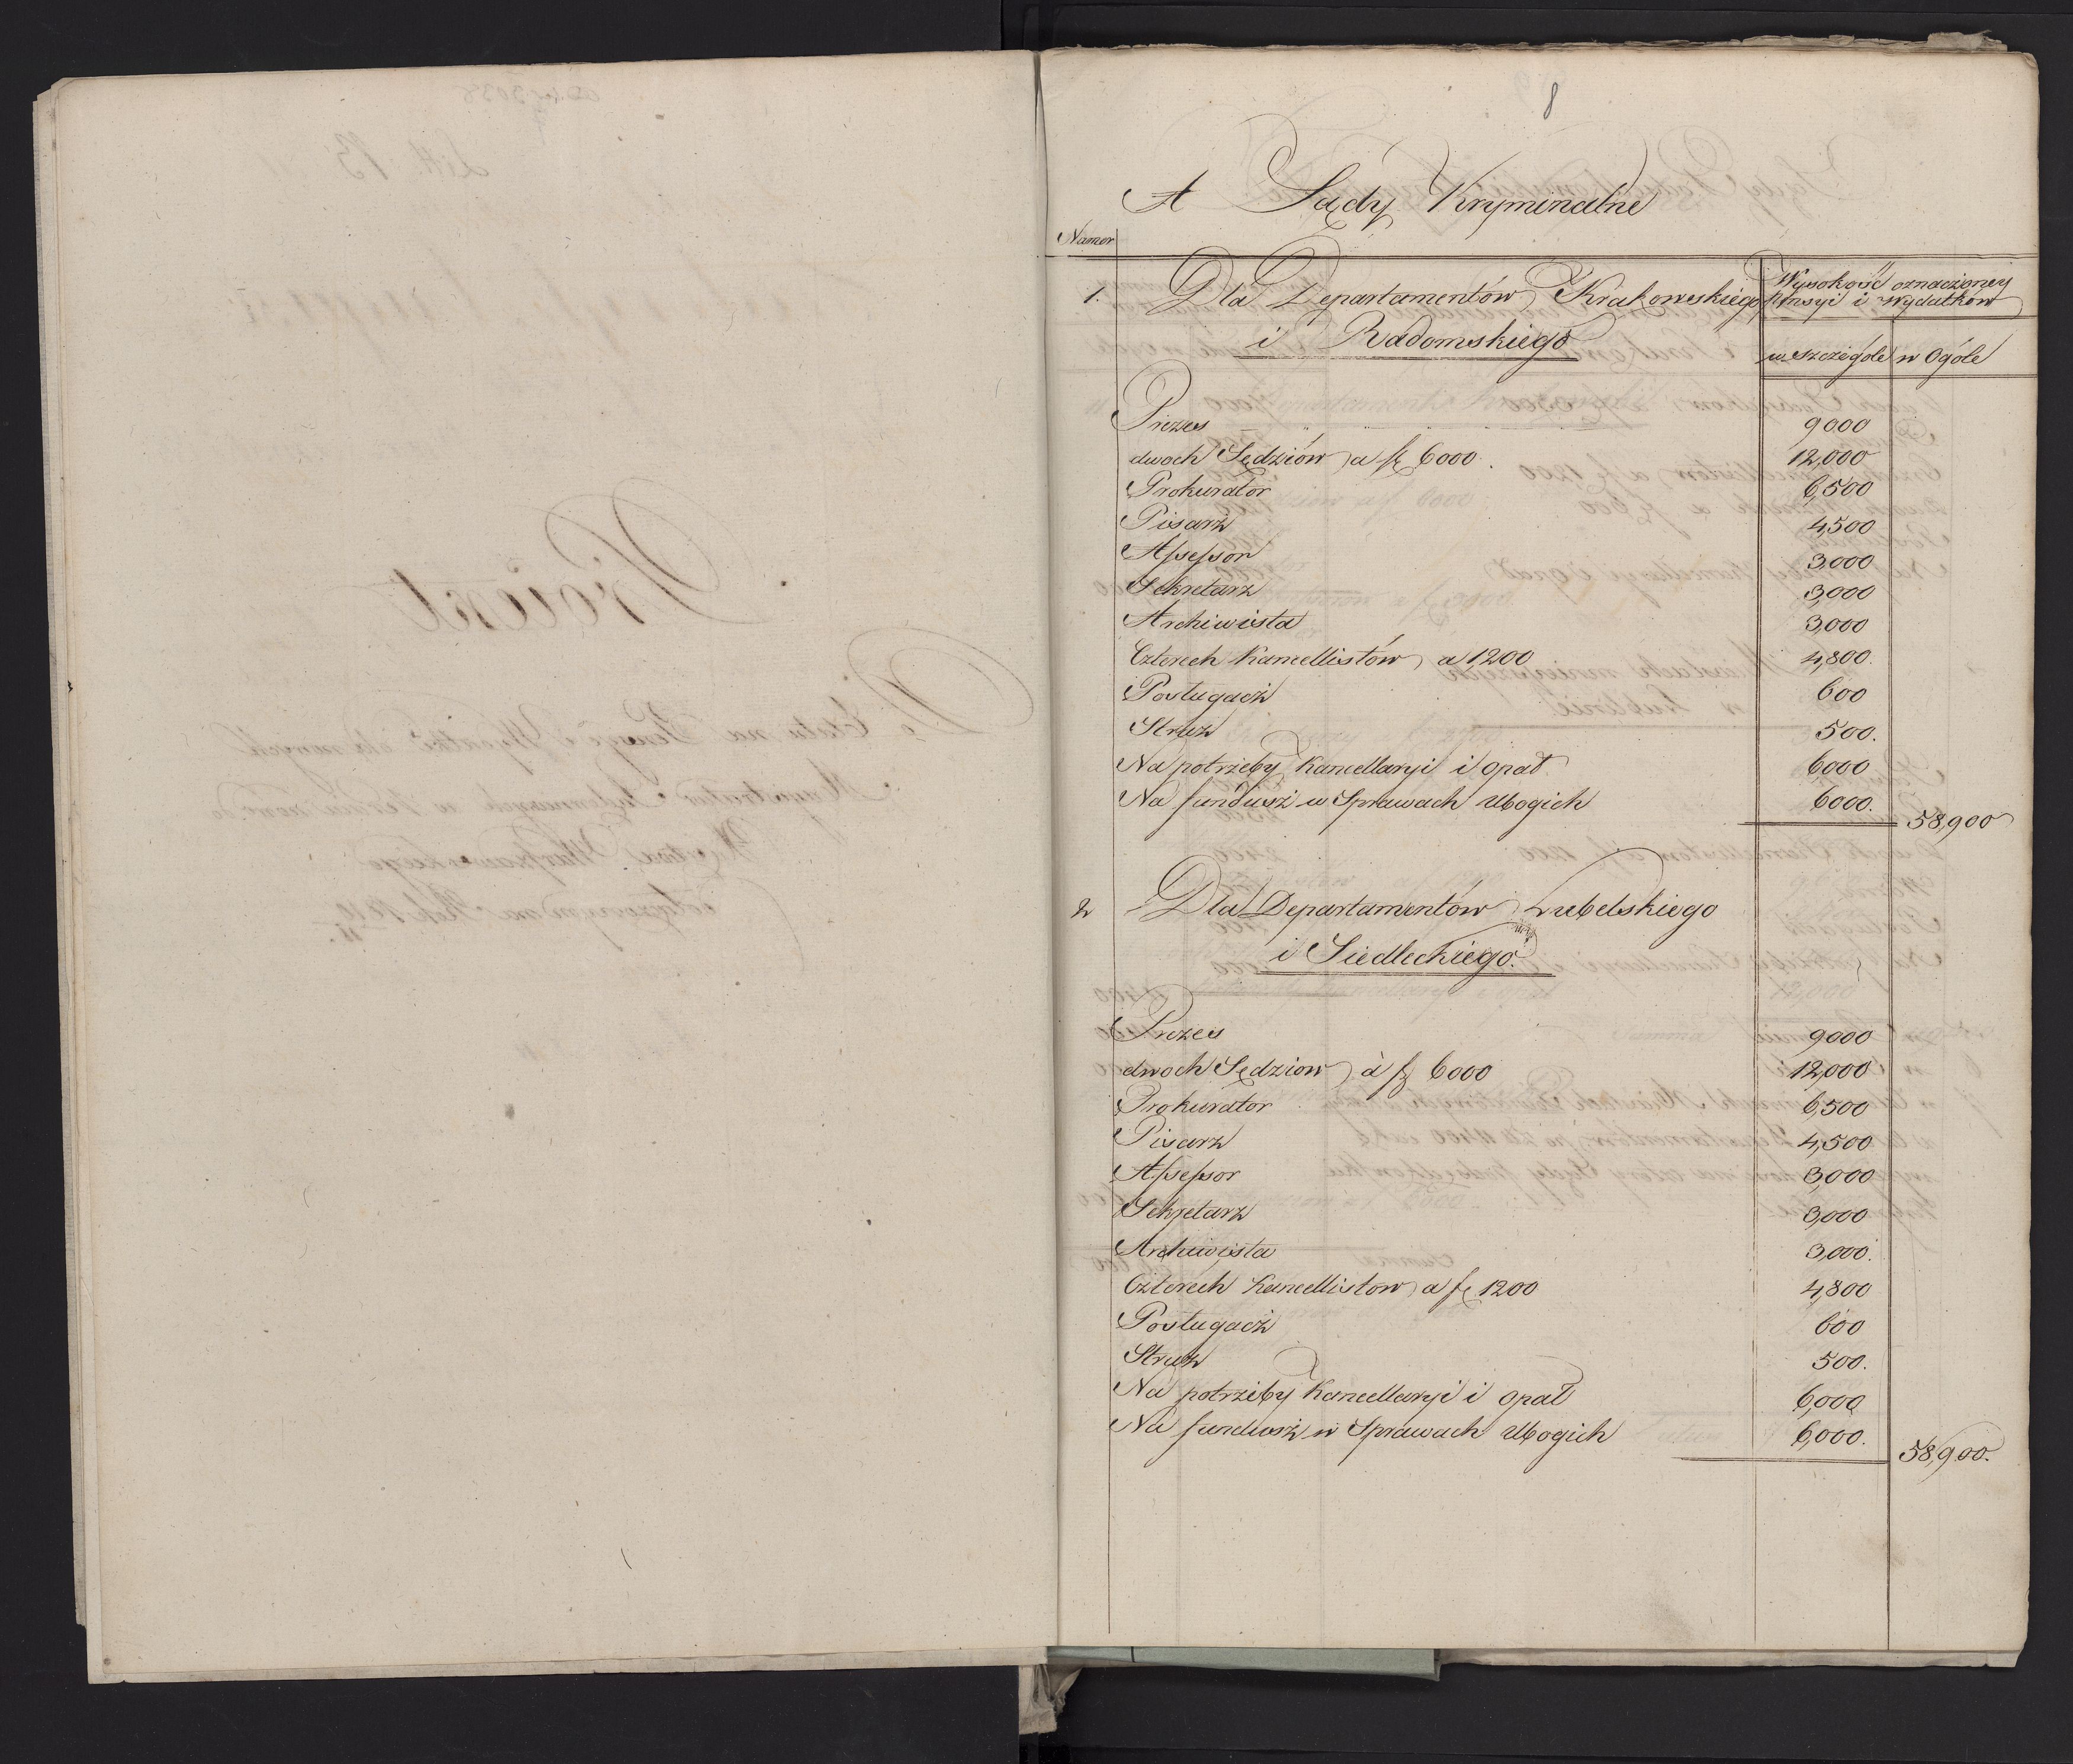 8
A Sądy Kryminalne
Numer
1. Dla Departamentów Krakowskiego
i Radomskiego
Wysokość oznaczoney
pensyi i wydatków
w szczególe w Ogóle
Prezes 9000
dwoch Sędziów a fl 6000. 12,000
Prokurator 6,500
Pisarz 4,500
Assessor 3,000
Sekretarz 3,000
Archiwista 3,000
Czterech Kancellistów a 1200 4,800.
Posługacz 600
Struz 500.
Na potrzeby Kancellaryi i opał 6,000
Na fundusz w Sprawach Ubogich 6000.
58,900
2 Dla Departamentów Lubelskiego
i Siedleckiego.
Prezes 9000
dwoch Sędziow à fl 6000 12,000
Prokurator 6,500
Pisarz 4,500
Assessor 3,000
Sekretarz 3,000
Archiwista 3,000.
Czterech Kancellistow a fl 1200 4,800
Posługacz 600
Struz 500.
Na potrzeby Kancellaryi i opał 6,000
Na fundusz w Sprawach Ubogich 6,000.
58,900.